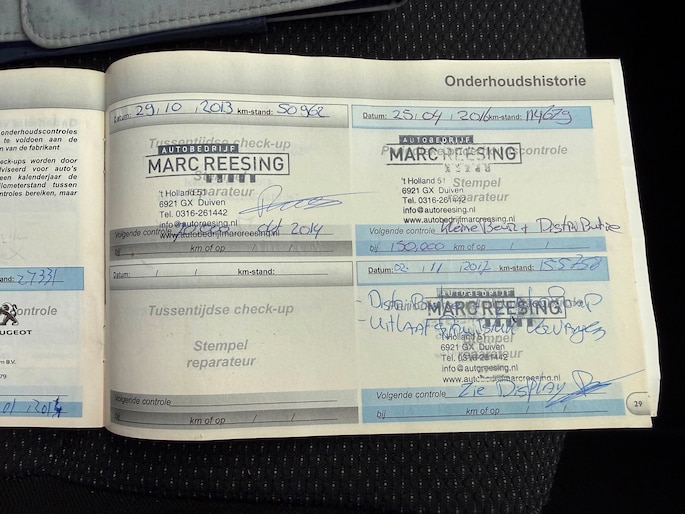 Onderhoudshistorie
onderhoudscontroles
te voldoen aan de
n van de fabrikant
eck-ups worden door
dviseerd voor auto's
een kalenderjaar de
ilometerstand tussen
ntroles bereiken, maar
and: 27331
ontrole
UGEOT
m B.V.
79
Datum: 29, 10, 2013 km-stand: 50962
Tussentijdse check-up
AUTOBEDRIJF
MARC REESING
Stempel
reparateur
't Holland 51
6921 GX Duiven
Tel. 0316-261442
info@autoreesing.nl
www.autobedrijfmarcreesing.nl
Volgende controle okt 2014
bij km of op / /
Datum: 25, 04, 2016 km-stand: 114679
AUTOBEDRIJF
MARC REESING
controle
Stempel
reparateur
't Holland 51
6921 GX Duiven
Tel. 0316-261442
info@autoreesing.nl
www.autobedrijfmarcreesing.nl
Volgende controle Kleine Beurt + Distri Butie
bij 150.000 km of op / /
Datum: / / km-stand:
Tussentijdse check-up
Stempel
reparateur
Volgende controle
bij km of op / /
Datum: 02, 11, 2017 km-stand: 155758
AUTOBEDRIJF
MARC REESING
- Uitlaat
't Holland 51
6921 GX Duiven
Tel. 0316-261442
info@autoreesing.nl
www.autobedrijfmarcreesing.nl
Volgende controle Zie Display
bij km of op / /
29